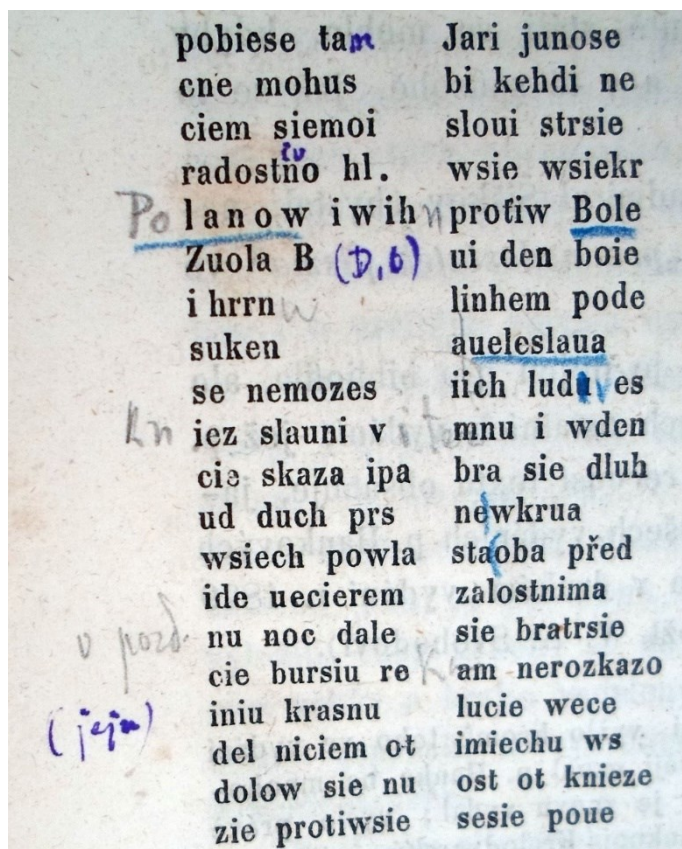 pobiese tam
cne mohus
ciem siemoi
radostno hl.
Po lanow iwih
Zuola B (D, b)
i hrrn w
suken
se nemozes
Kn iez slauni v
cie skaza ipa
ud duch prs
wsiech powla
ide uecierem
v pozd. nu noc dale
cie bursiu re
(jeju) iniu krasnu
del niciem ot
dolow sie nu
zie protiwsie
Jari junose
bi kehdi ne
sloui strsie
wsie wsiekr
protiw Bole
ui den boie
linhem pode
aueleslaua
iich ludi ves
mnu i wden
bra sie dluh
newkrua
staoba před
zalostnima
sie bratrsie
am nerozkazo
lucie wece
imiechu ws
ost ot knieze
sesie poue